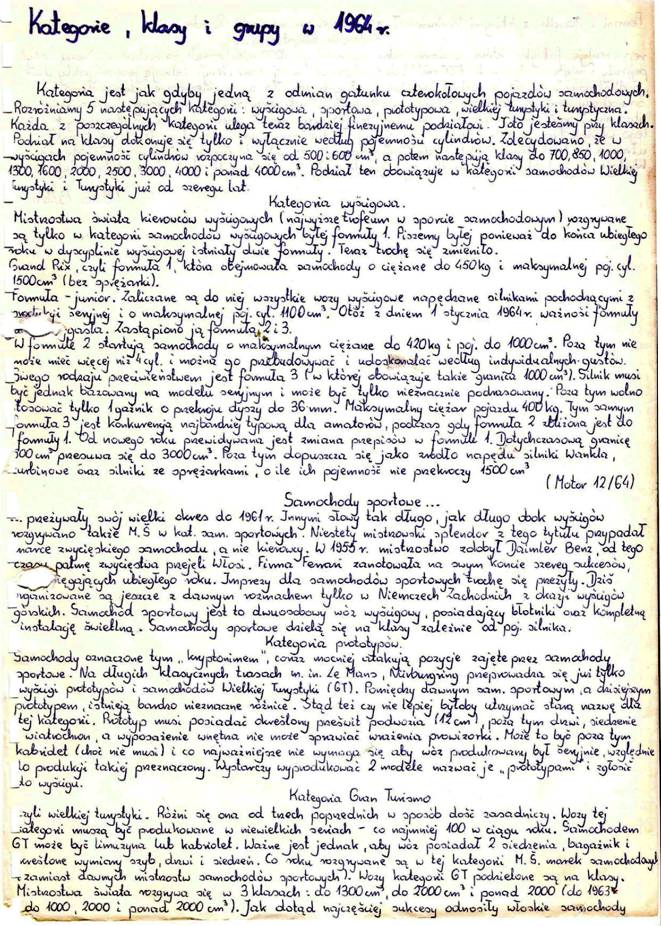 Kategorie, klasy i grupy w 1964 r.
Kategoria jest jak gdyby jedną z odmian gatunku czterokołowych pojazdów samochodowych.
Rozróżniamy 5 następujących kategorii: wyścigowa, sportowa, prototypowa, wielkiej turystyki i turystyczna.
Każda z poszczególnych kategorii ulega teraz bardziej finezyjnemu podziałowi. I oto jesteśmy przy klasach.
Podział na klasy dokonuje się tylko i wyłącznie według pojemności cylindrów. Zdecydowano, że w
wyścigach pojemność cylindrów rozpoczyna się od 500 i 600 cm³, a potem następują klasy do 700, 850, 1000,
1300, 1600, 2000, 2500, 3000, 4000 i ponad 4000 cm³. Podział ten obowiązuje w kategorii samochodów Wielkiej
Turystyki i Turystyki już od szeregu lat.
Kategoria wyścigowa.
Mistrzostwa świata kierowców wyścigowych (najwyższe trofeum w sporcie samochodowym) rozgrywane
są tylko w kategorii samochodów wyścigowych byłej formuły 1. Piszemy byłej ponieważ do końca ubiegłego
roku w dyscyplinie wyścigowej istniały dwie formuły. Teraz trochę się zmieniło.
Grand Prix, czyli formuła 1, która obejmowała samochody o ciężarze do 450 kg i maksymalnej poj. cyl.
1500 cm³ (bez sprężarki).
Formuła - junior. Zaliczane są do niej wszystkie wozy wyścigowe napędzane silnikami pochodzącymi z
produkcji seryjnej i o maksymalnej poj. cyl. 1100 cm³. Otóż z dniem 1 stycznia 1964 r. ważność formuły
gasła. Zastąpiono ją formułą 2 i 3.
W formule 2 startują samochody o maksymalnym ciężarze do 420 kg i poj. do 1000 cm³. Poza tym nie
może mieć więcej niż 4 cyl. i można go przebudowywać i udoskonalać według indywidualnych gustów.
Swego rodzaju przeciwieństwem jest formuła 3 (w której obowiązuje także granica 1000 cm³). Silnik musi
być jednak bazowany na modelu seryjnym i może być tylko nieznacznie podrasowany. Poza tym wolno
stosować tylko 1 gaźnik o przekroju dyszy do 36 mm. Maksymalny ciężar pojazdu 400 kg. Tym samym
formuła 3 jest konkurencją najbardziej typową dla amatorów, podczas gdy formuła 2 zbliżona jest do
formuły 1. Od nowego roku przewidywana jest zmiana przepisów w formule 1. Dotychczasową granicę
500 cm³ przesuwa się do 3000 cm³. Poza tym dopuszcza się jako źródło napędu silniki Wankla,
turbinowe oraz silniki ze sprężarkami, o ile ich pojemność nie przekroczy 1500 cm³
(Motor 12/64)
Samochody sportowe...
... przeżywały swój wielki okres do 1961 r. Innymi słowy tak długo, jak długo obok wyścigów
rozgrywano także M.Ś w kat. sam. sportowych. Niestety mistrzowski splendor z tego tytułu przypadał
marce zwycięskiego samochodu, a nie kierowcy. W 1955 r. mistrzostwo zdobył Daimler Benz, od tego
czasu palmę zwycięstwa przejęli Włosi. Firma Ferrari zanotowała na swym koncie szereg sukcesów,
sięgających ubiegłego roku. Imprezy dla samochodów sportowych trochę się przeżyły. Dziś
organizowane są jeszcze z dawnym rozmachem tylko w Niemczech Zachodnich z okazji wyścigów
górskich. Samochód sportowy jest to dwuosobowy wóz wyścigowy, posiadający błotniki oraz kompletną
instalację świetlną. Samochody sportowe dzielą się na klasy zależnie od poj. silnika.
Kategoria prototypów.
Samochody oznaczone tym „kryptonimem", coraz mocniej atakują pozycje zajęte przez samochody
sportowe. Na długich klasycznych trasach m. in. Le Mans, Nürburgring przeprowadza się już tylko
wyścigi prototypów i samochodów Wielkiej Turystyki (GT). Pomiędzy dawnym sam. sportowym, a dzisiejszym
prototypem, istnieją bardzo nieznaczne różnice. Stąd też czy nie lepiej byłoby utrzymać starą nazwę dla
tej kategorii. Prototyp musi posiadać określony prześwit podwozia (12 cm), poza tym drzwi, siedzenie
wiatrochron, a wyposażenie wnętrza nie może sprawiać wrażenia prowizorki. Może to być poza tym
kabriolet (choć nie musi) i co najważniejsze nie wymaga się aby wóz produkowany był seryjnie, względnie
to produkcji takiej przeznaczony. Wystarczy wyprodukować 2 modele nazwać je „prototypami" i zgłosić
to wyścigu.
Kategoria Gran Turismo
czyli wielkiej turystyki. Różni się ona od trzech poprzednich w sposób dość zasadniczy. Wozy tej
kategorii muszą być produkowane w niewielkich seriach - co najmniej 100 w ciągu roku. Samochodem
GT może być limuzyna lub kabriolet. Ważne jest jednak, aby wóz posiadał 2 siedzenia, bagażnik i
określone wymiary szyb, drzwi i siedzeń. Co roku rozgrywane są w tej kategorii M.Ś. marek samochodowych
(zamiast dawnych mistrzostw samochodów sportowych). Wozy kategorii GT podzielone są na klasy.
Mistrzostwa świata rozgrywa się w 3 klasach: do 1300 cm³, do 2000 cm³ i ponad 2000 (do 1963 r
do 1000, 2000 i ponad 2000 cm³). Jak dotąd najczęściej sukcesy odnosiły włoskie samochody